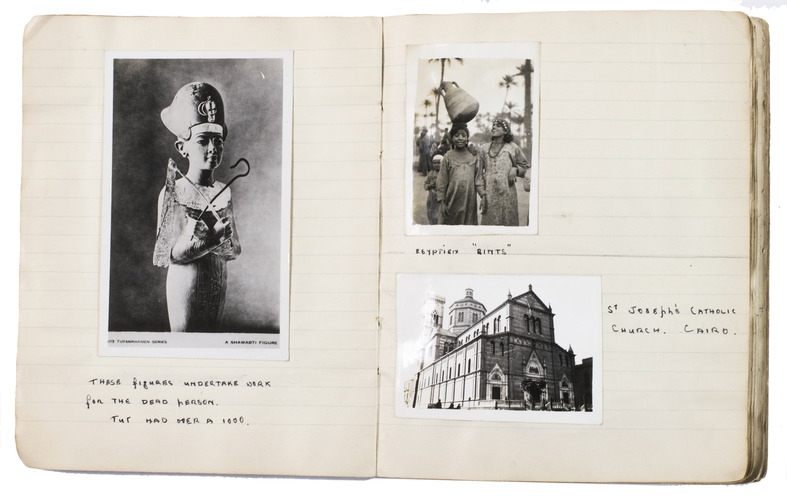 TUTANKHAMEN SERIES
A SHAWABTI FIGURE
THESE figURES UNDERTAKE WORK
foR THE DEAD pERSON.
TUT HAD OVER A 1000.
EGYPTIEN "BINTS"
ST JOSEph'S CATHOLIC
CHURCH. CAIRO.